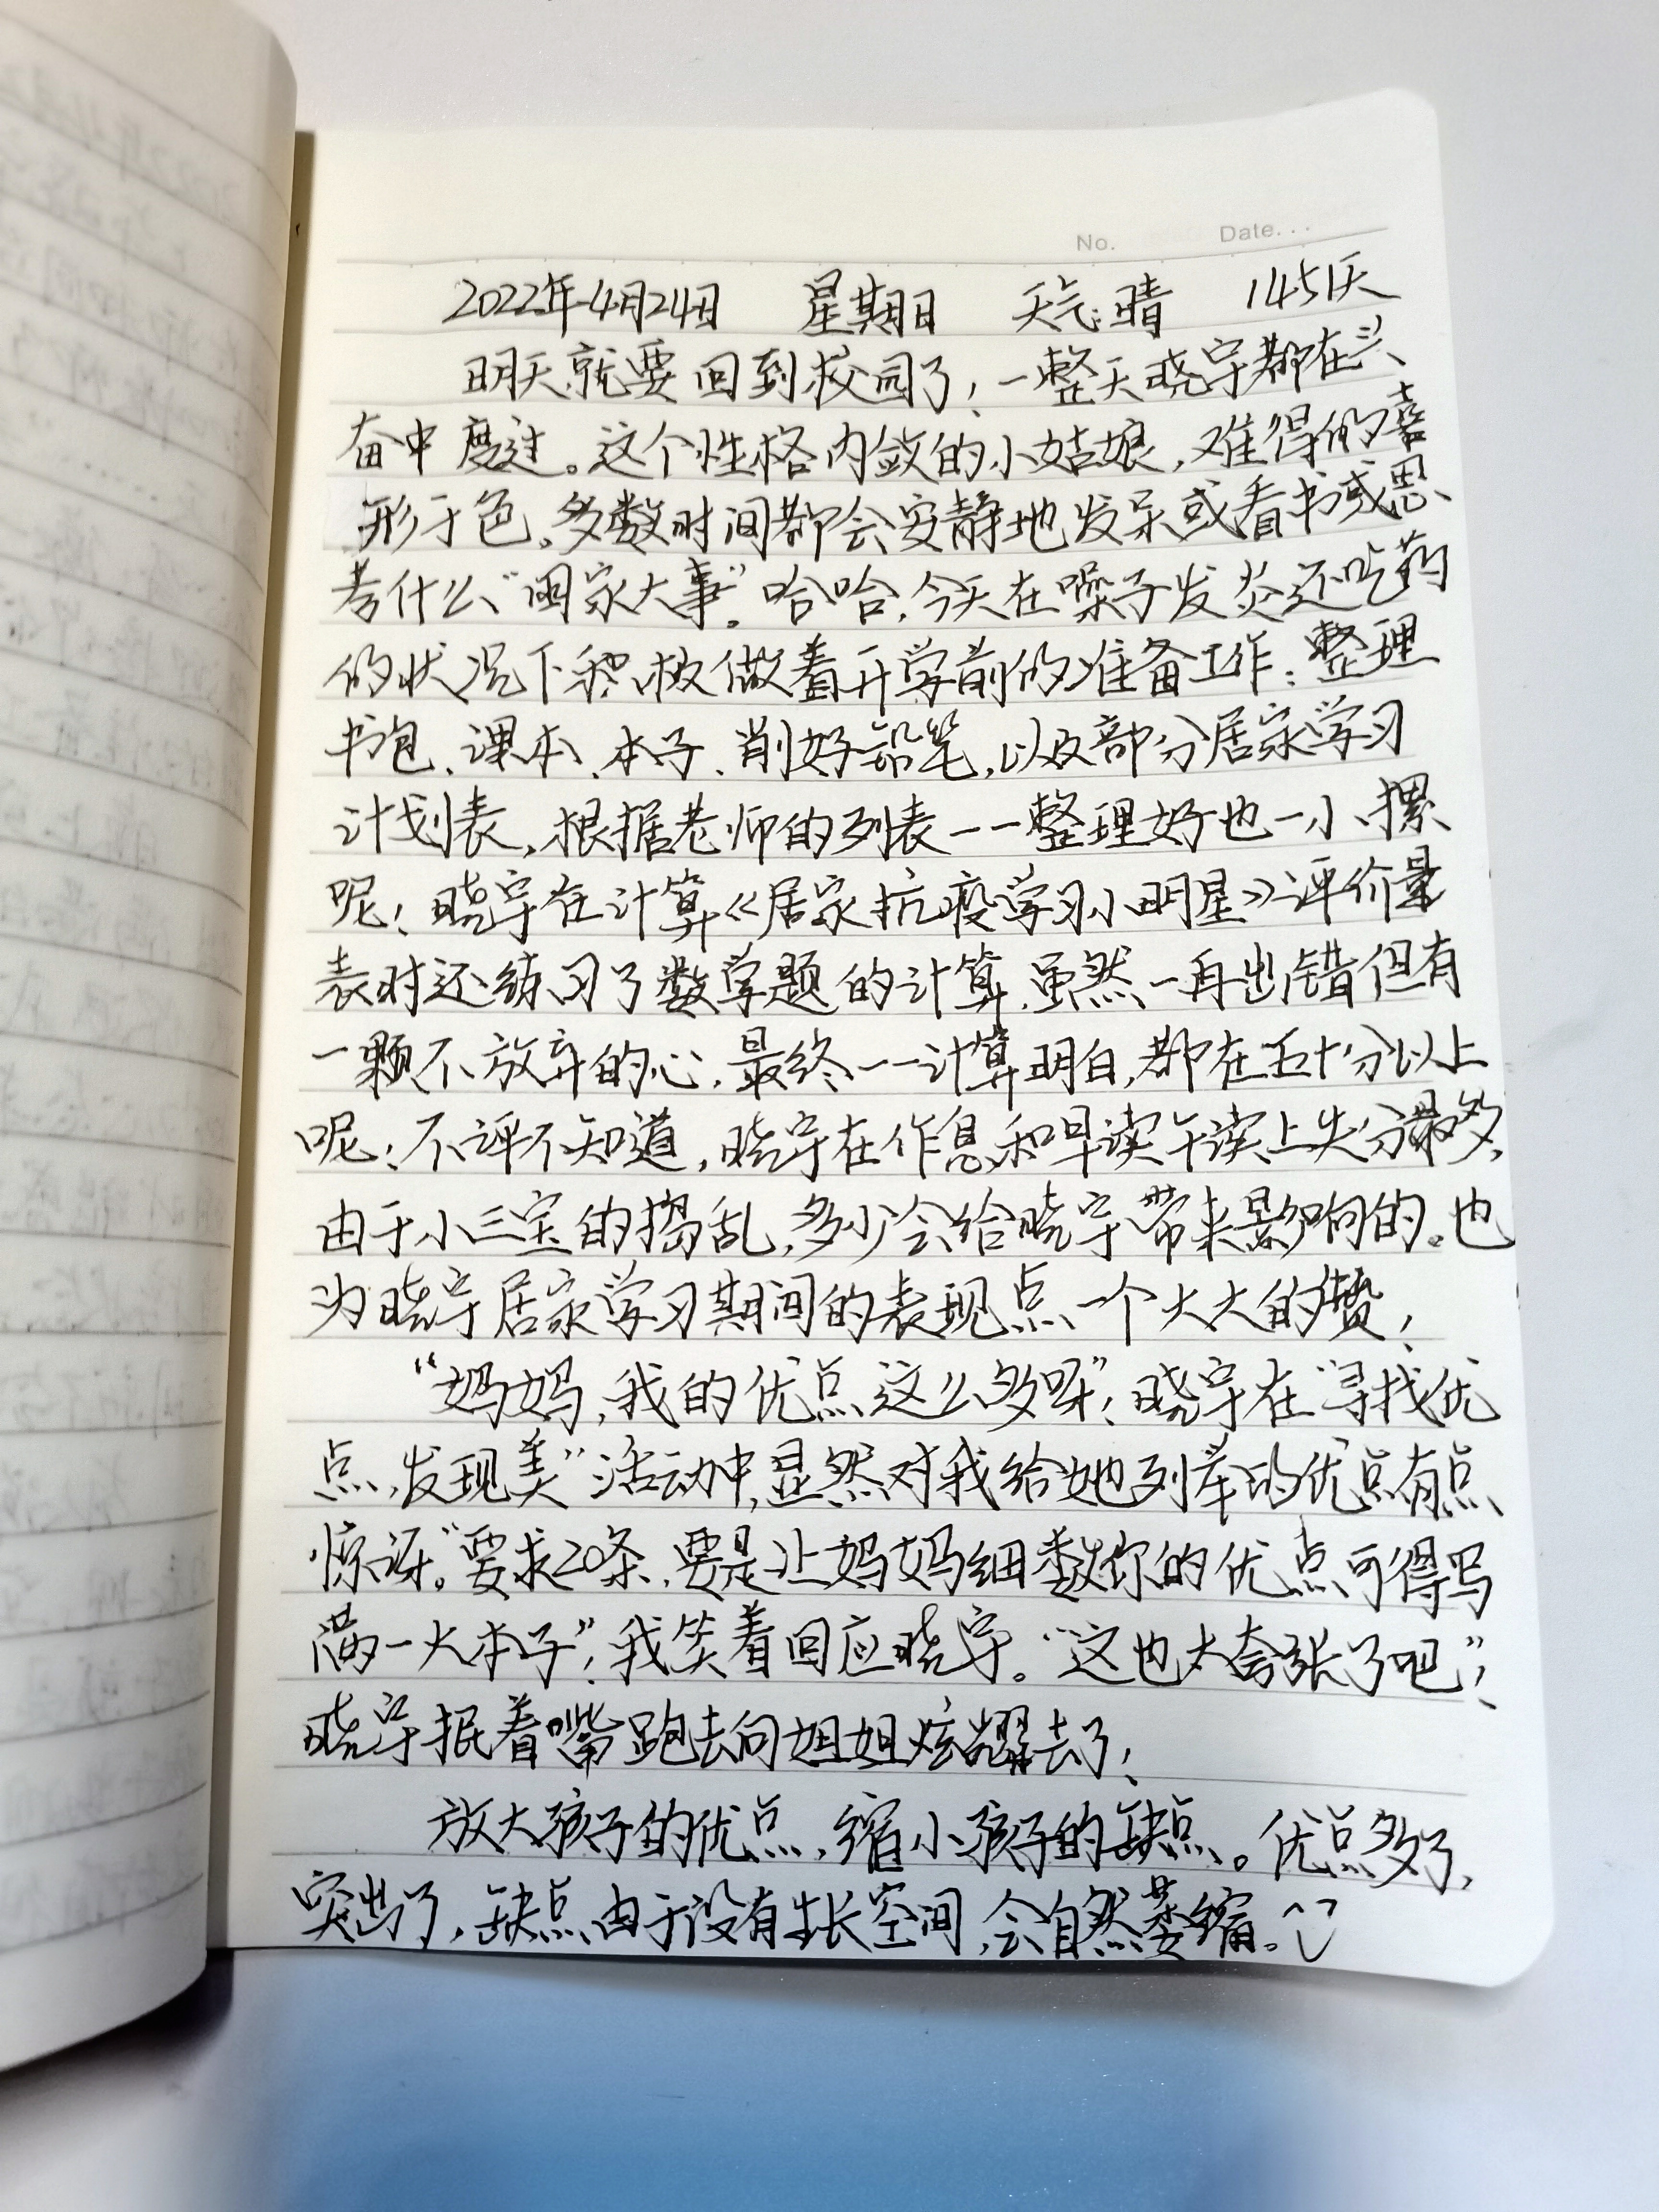 No.    Date...
2022年4月24日 星期日 天气:晴 1451天
明天就要回到校园了!一整天晓宇都在兴
奋中度过。这个性格内敛的小姑娘,难得的喜
形于色。多数时间都会安静地发呆或看书或思
考什么"国家大事"。哈哈,今天在嗓子发炎还吃药
的状况下积极做着开学前的准备工作:整理
书包、课本、本子、削好铅笔,以及部分居家学习
计划表,根据老师的列表一一整理好也一小摞
呢!晓宇在计算《居家抗疫学习小明星》评价量
表时还练习了数学题的计算,虽然一再出错但有
一颗不放弃的心,最终一一计算明白,都在五十分以上
呢!不评不知道,晓宇在作息和早读午读上失分最多,
由于小三宝的捣乱,多少会给晓宇带来影响的。也
为晓宇居家学习期间的表现点一个大大的赞!
"妈妈,我的优点这么多呀"!晓宇在"寻找优
点,发现美"活动中,显然对我给她列举的优点有点
惊讶。"要求20条,要是让妈妈细数你的优点可得写
满一大本子"!我笑着回应晓宇。"这也太夸张了吧"!
晓宇抿着嘴跑去向姐姐炫耀去了!
放大孩子的优点,缩小孩子的缺点。优点多了,
突出了,缺点由于没有生长空间,会自然萎缩。